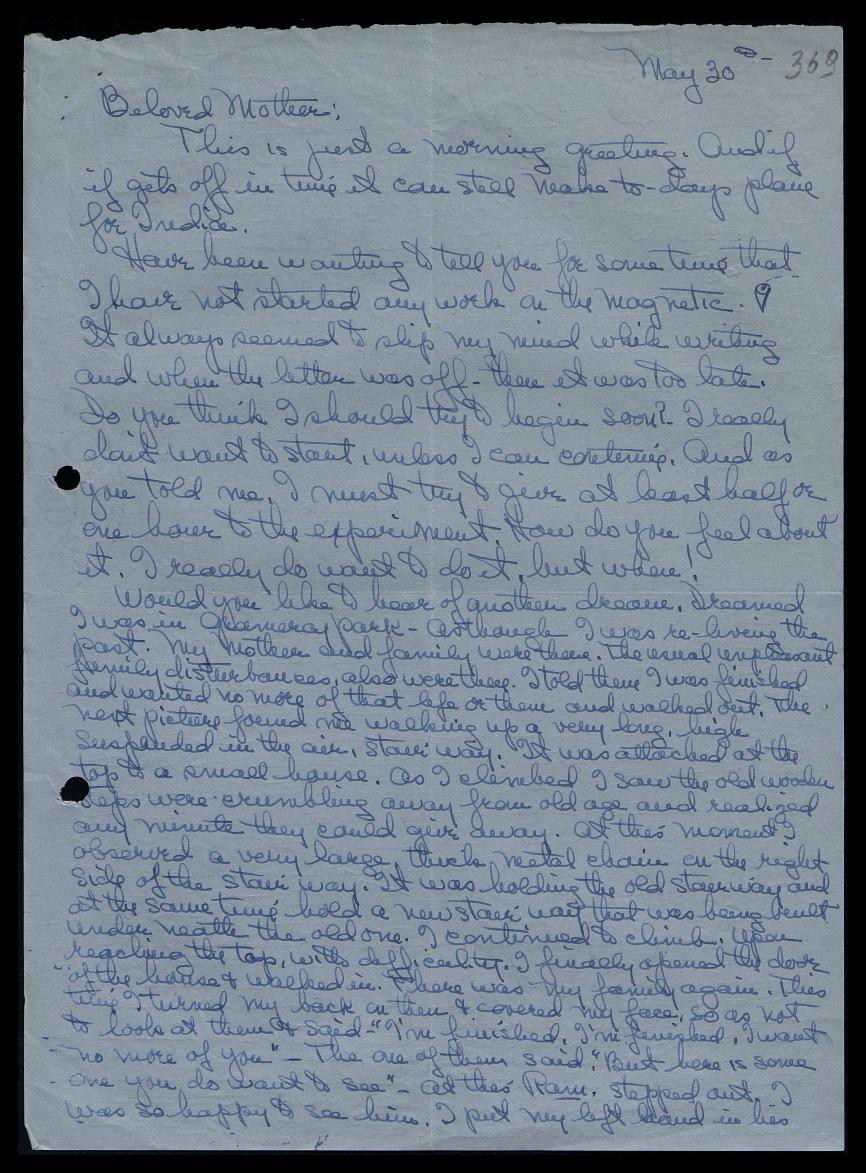 May 30th - 369
Beloved Mother:
This is just a morning greeting. And if
it gets off in time it can still make to-days plane
for India.
Have been wanting to tell you for some time that
I have not started any work on the magnetic.
It always seemed to slip my mind while writing
and when the letter was off - then it was too late.
Do you think I should try to begin soon? I really
don't want to start, unless I can continue. And as
you told me, I must try to give at least half or
one hour to the experiment. How do you feel about
it. I really do want to do it, but when!
Would you like to hear of another dream. Dreamed
I was in Gramercy Park - As though I was re-living the
past. My Mother and family were there. The usual unpleasant
family disturbances, also were there. I told them I was finished
and wanted no more of that life or them and walked out. The
next picture found me walking up a very long, high
suspended in the air, stair way. It was attached at the
top to a small house. As I climbed I saw the old wooden
steps were crumbling away from old age and realized
any minute they could give away. At this moment I
observed a very large, thick, metal chain on the right
side of the stair way. It was holding the old stairway and
at the same time hold a new stair way that was being built
under neath the old one. I continued to climb. Upon
reaching the top, with difficulty. I finally opened the door
of the house & walked in. There was my family again. This
time I turned my back on them & covered my face, so as not
to look at them & said - "I'm finished, I'm finished, I want
no more of you" - The one of them said, "But here is some
one you do want to see" - At this Ram, stepped out. I
was so happy to see him. I put my left hand in his